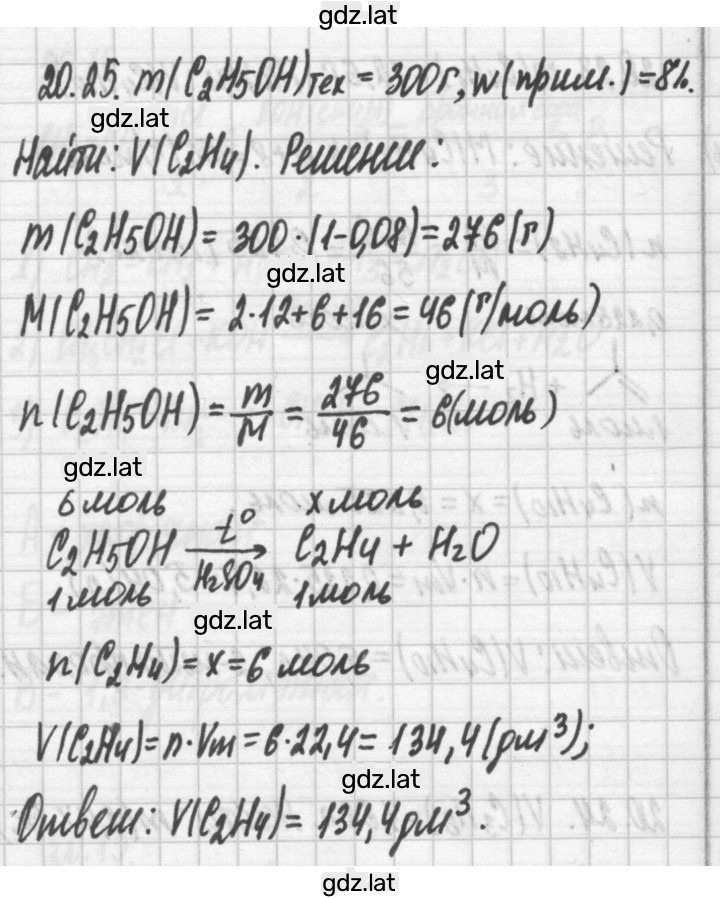 gdz.lat
20.25. m(C₂H₅OH)тех = 300г, w(прим.) = 8%.
gdz.lat
Найти: V(C₂H₄). Решение:
m(C₂H₅OH) = 300·(1-0,08) = 276(г)
gdz.lat
M(C₂H₅OH) = 2·12+6+16 = 46(г/моль)
gdz.lat
n(C₂H₅OH) = m/M = 276/46 = 6(моль)
gdz.lat
6 моль x моль
C₂H₅OH t° → H₂SO₄ C₂H₄ + H₂O
1 моль 1 моль
gdz.lat
n(C₂H₄) = x = 6 моль
V(C₂H₄) = n·Vm = 6·22,4 = 134,4(дм³);
gdz.lat
Ответ: V(C₂H₄) = 134,4дм³.
gdz.lat